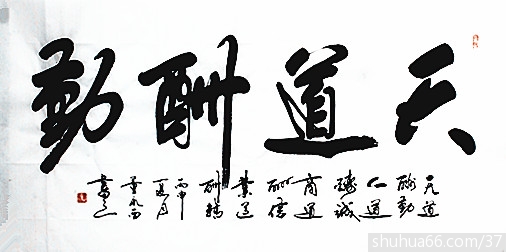 天道酬勤
天道
酬勤
道
诚
商道
酬信
業道
酬精
丙申
夏月
書之
shuhua66.com/37